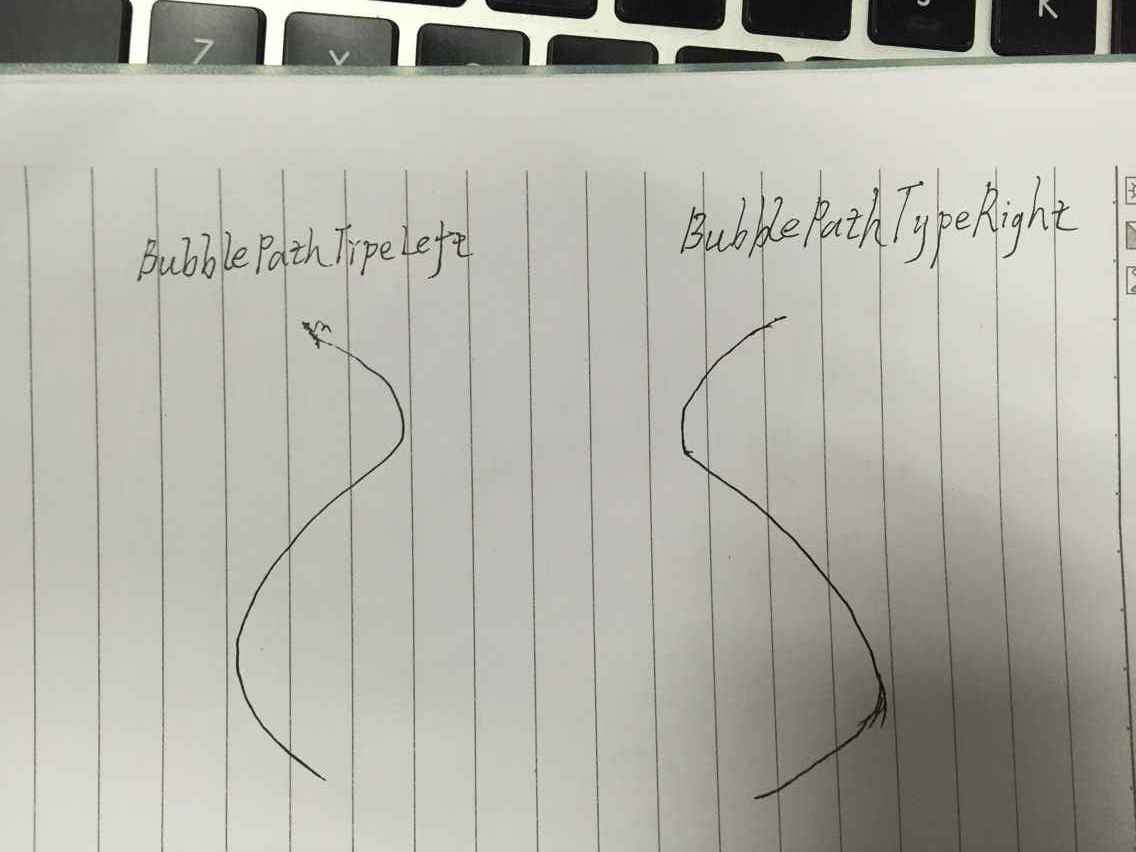 Z X J K
BubblePathTypeLeft
BubblePathTypeRight